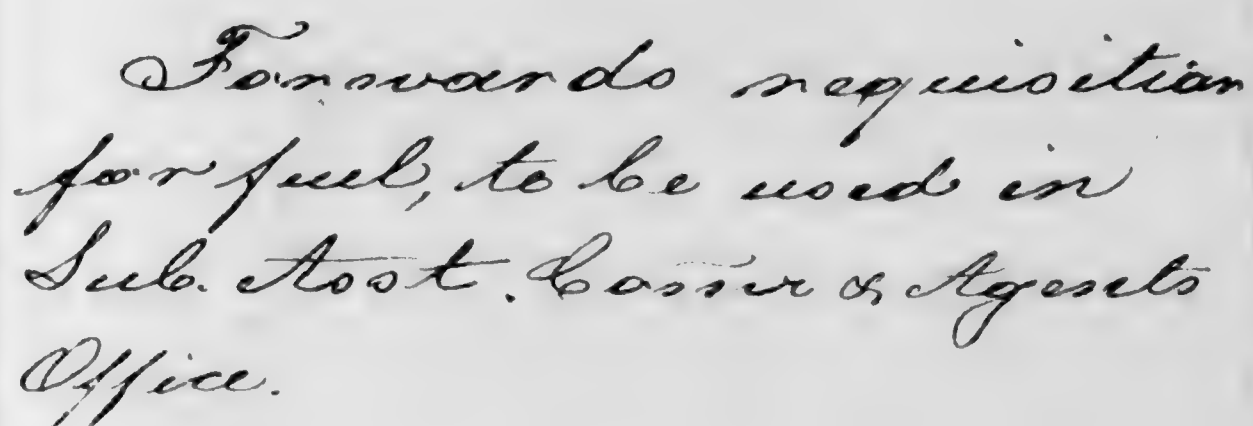 Forwards requisition
for fuel, to be used in
Sub. Asst. Comr & Agents
Office.